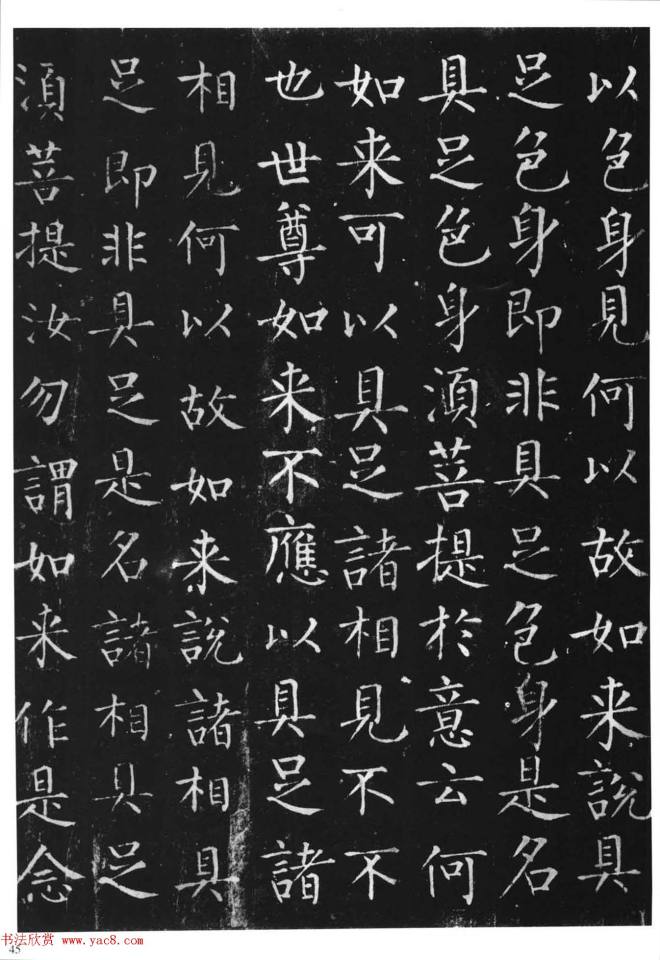 以色身見何以故如来說具
足色身即非具足色身是名
具足色身湏菩提於意云何
如来可以具足諸相見不不
也世尊如来不應以具足諸
相見何以故如来說諸相具
足即非具足是名諸相具足
湏菩提汝勿謂如来作是念
书法欣赏 www.yac8.com
45